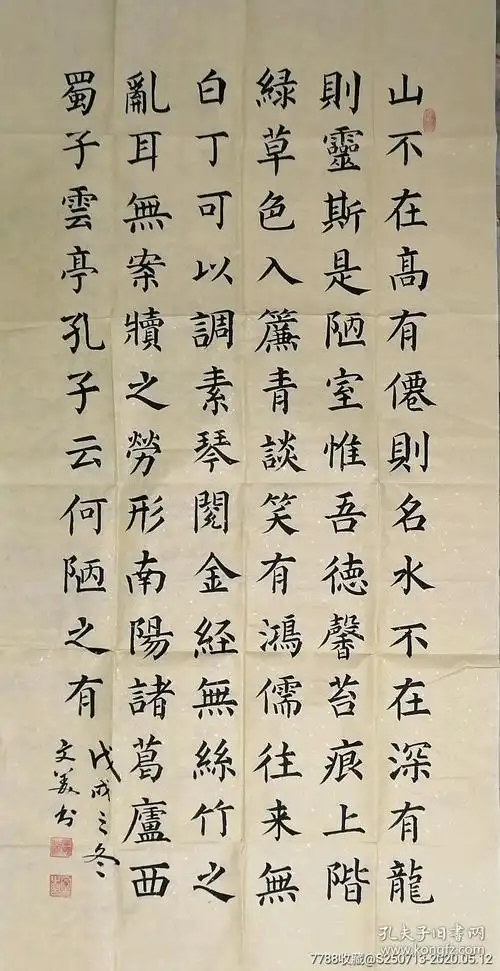 山不在高有僊則名水不在深有龍
則靈斯是陋室惟吾徳馨苔痕上階
緑草色入簾青談笑有鴻儒往来無
白丁可以調素琴閱金経無絲竹之
亂耳無案牘之勞形南陽諸葛廬西
蜀子雲亭孔子云何陋之有
戊戌之冬
文美书
孔夫子旧书网
7788收藏@S250713-2020.05.12